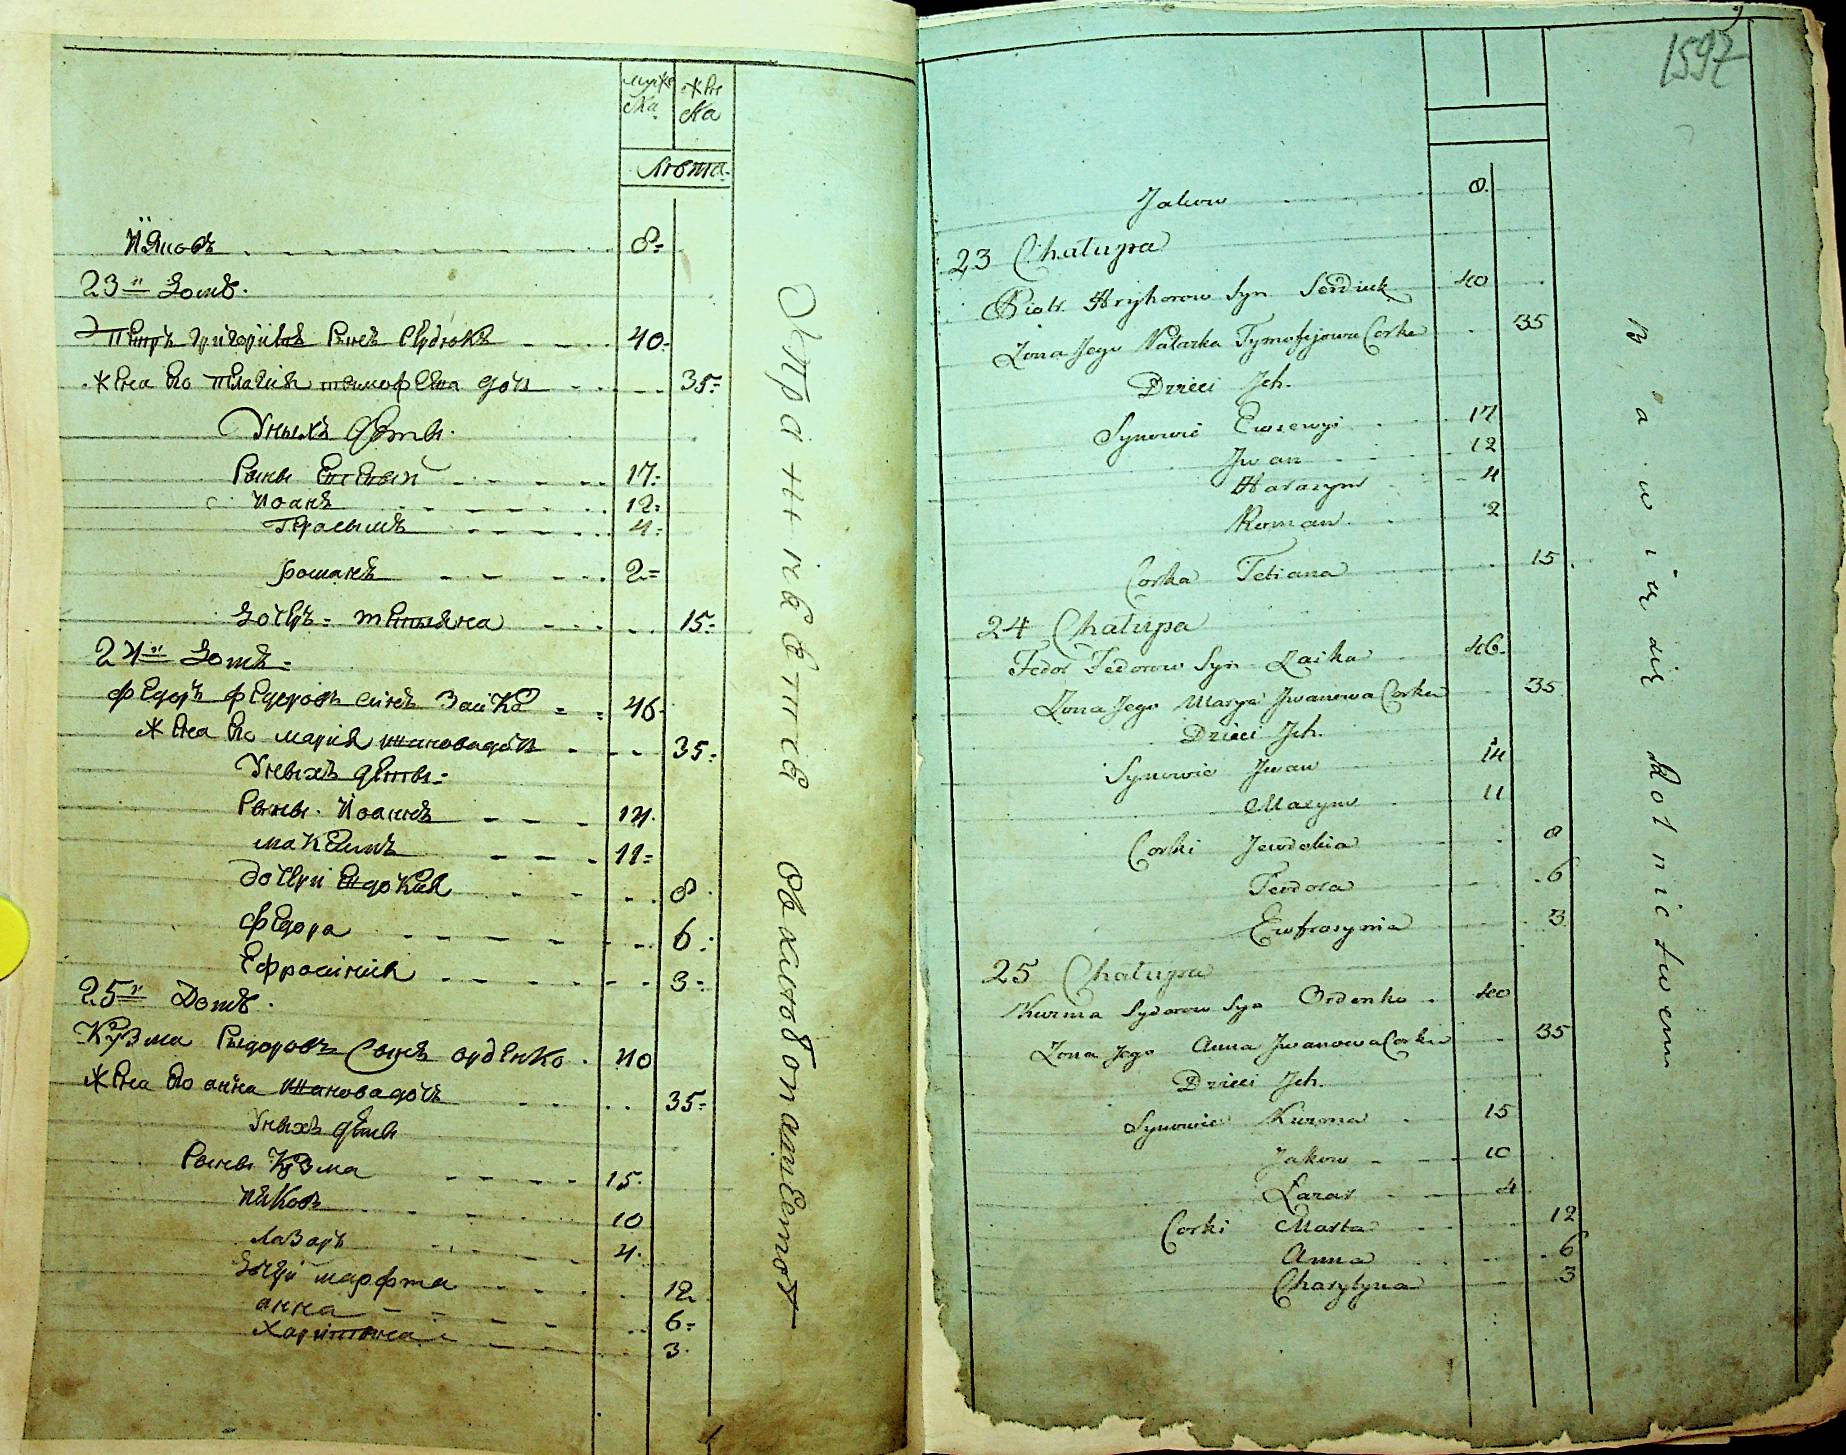 мужеска женска
лѣта
Іяковъ 8
23й Домъ
Петръ Григоріевъ синъ Сердюкъ 40
Жена его Пелагия тимофеева дочь 35
У них дети
Сыны Евсевый 17
Иоанъ 12
Герасымъ 4
романъ 2
Дочерь татыяна 15
24й Домъ
федоръ федоровъ синъ Заика 46
Жена его мария иванова дочь 35
У них дети
Сыны Иоаннъ 14
максимъ 11
дочери евдокия 8
федора 6
Ефросиния 3
25й Домъ
Кузма Сыдоровъ Сынъ орденко 40
Жена его анна иванова дочь 35
У них дети
Сыны Кузма 15
Яковъ 10
Лазарь 4
Дочери марфта 12
анна 6
Харитина 3
1597
Jakow 8
23 Chałupa
Piotr Hryhorow Syn Serdiuk 40
Żona Jego Pałazka Tymofijowa Corka 35
Dzieci Ich
Synowie Ewsewyi 17
Jwan 12
Harasym 4
Roman 2
Corka Tetiana 15
24 Chałupa
Fedor Fedorow Syn Zaika 46
Żona Jego Marya Jwanowa Corka 35
Dzieci Ich
Synowie Jwan 14
Maxym 11
Corki Jewdokia 8
Teodora 6
Ewfrosynia 3
25 Chałupa
Kuzma Sydorow Syn Ordenko 40
Żona Jego Anna Jwanowa Corka 35
Dzieci Ich
Synowie Kuzma 15
Jakow 10
Łazar 4
Corki Marta 12
Anna 6
Charytyna 3
Bawią się Rolnictwem